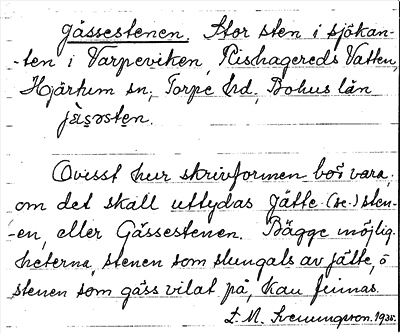 Gässestenen. Stor sten i sjökan-
-ten i Varpeviken, Rishagereds Vatten,
Hjärtum sn, Torpe hd, Bohus län
jäsəsten.
Ovisst hur skrivformen bör vara;
om det skall uttydas Jätte (se-) sten-
en, eller Gässestenen. Bägge möjlig-
heterna, stenen som slungats av jätte, o
stenen som gäss vilat på, kan finnas.
E. M. 1935.